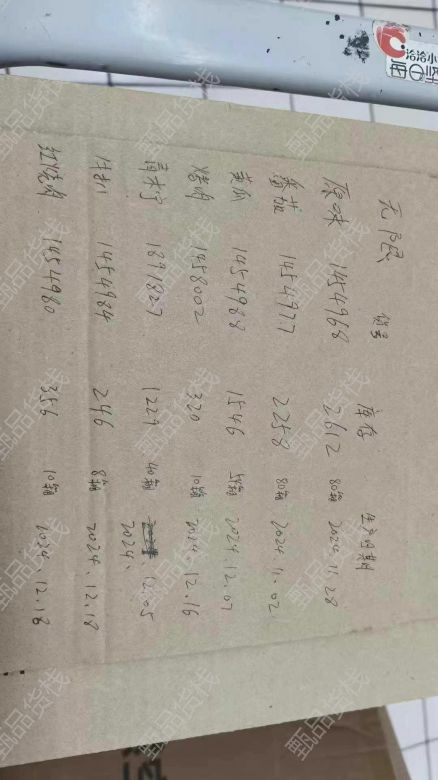 无限 编号 库存 生产日期
原味 1454968 2612 80箱 2024.11.28
番茄 1454977 2258 80箱 2024.11.02
黄瓜 1454988 1546 2024.12.07
1458002 320 10箱 2024.12.16
青柠 1891827 1229 40箱 2024.12.05
1454984 246 8箱 2024.12.18
红烧肉 1454980 356 10箱 2024.12.18
洽洽小
甄品货栈